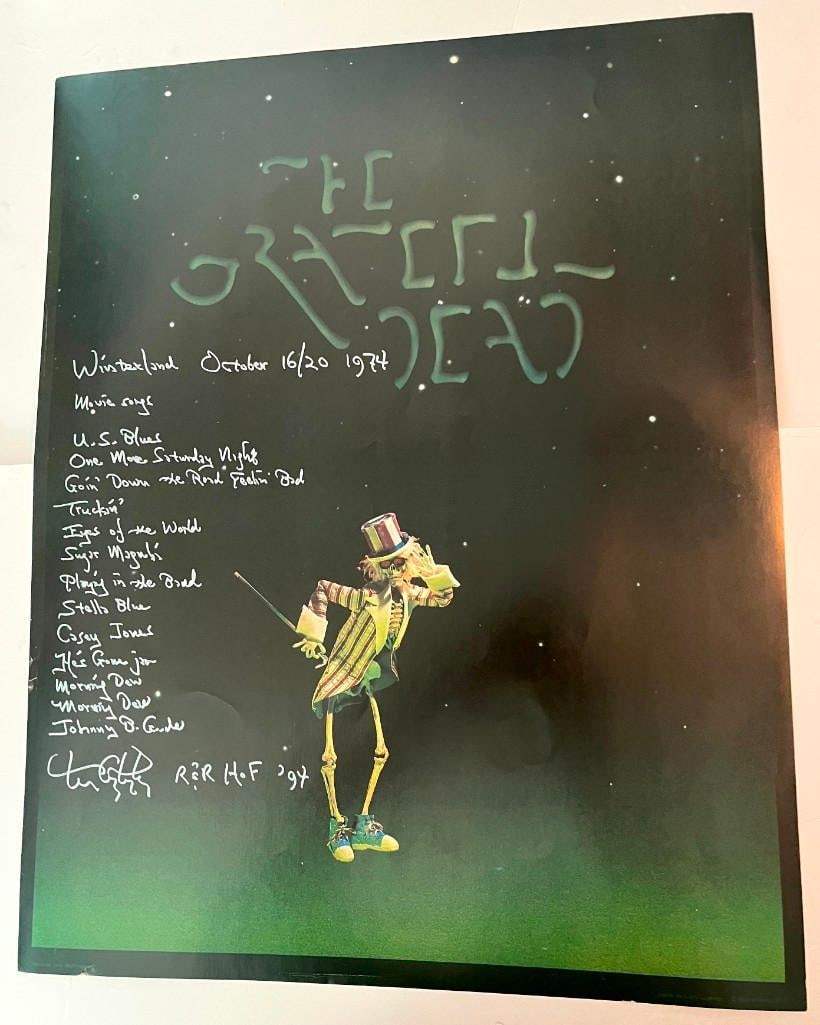 THE
GRATEFUL
DEAD
Winterland October 16/20 1974
Movie songs
U.S. Blues
One More Saturday Night
Goin' Down the Road Feelin' Bad
Truckin'
Eyes of the World
Sugar Magnolia
Playing in the Band
Stella Blue
Casey Jones
He's Gone jam
Morning Dew
Morning Dew
Johnny B. Goode
R&R HoF '94